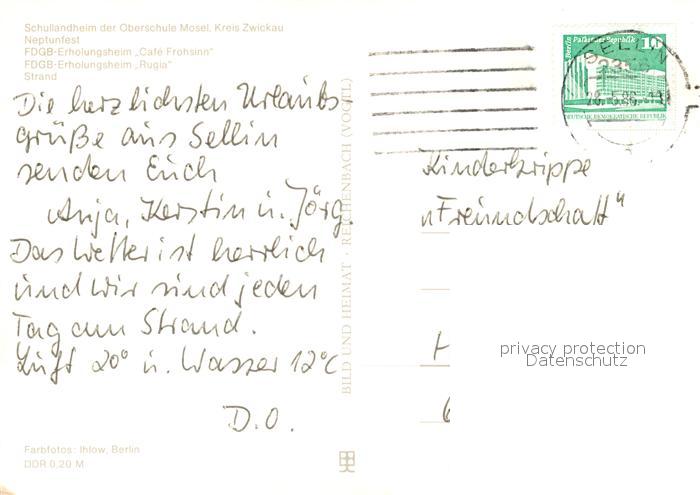 Schullandheim der Oberschule Mosel, Kreis Zwickau
Neptunfest
FDGB-Erholungsheim „Café Frohsinn"
FDGB-Erholungsheim „Rugia"
Strand
Die herzlichsten Urlaubs-
grüße aus Sellin
senden Euch
Anja, Kerstin u. Jörg.
Das Wetter ist herrlich
und wir sind jeden
Tag am Strand.
Luft 20° u. Wasser 12°C
D.O.
Farbfotos: Ihlow, Berlin
DDR 0,20 M
BILD UND HEIMAT · REICHENBACH (VOGTL)
Berlin Palast der Republik 10
DEUTSCHE DEMOKRATISCHE REPUBLIK
SELLIN
Kinderkrippe
„Freundschaft"
privacy protection
Datenschutz